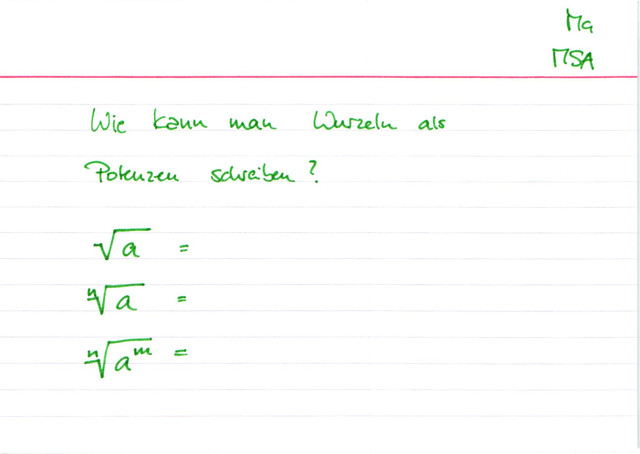 Ma
MSA
Wie kann man Wurzeln als
Potenzen schreiben?
√a =
ⁿ√a =
ⁿ√aᵐ =